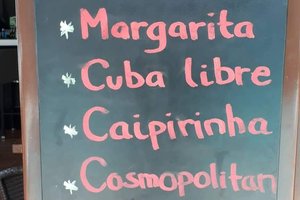 Margarita
Cuba libre
Caipirinha
Cosmopolitan